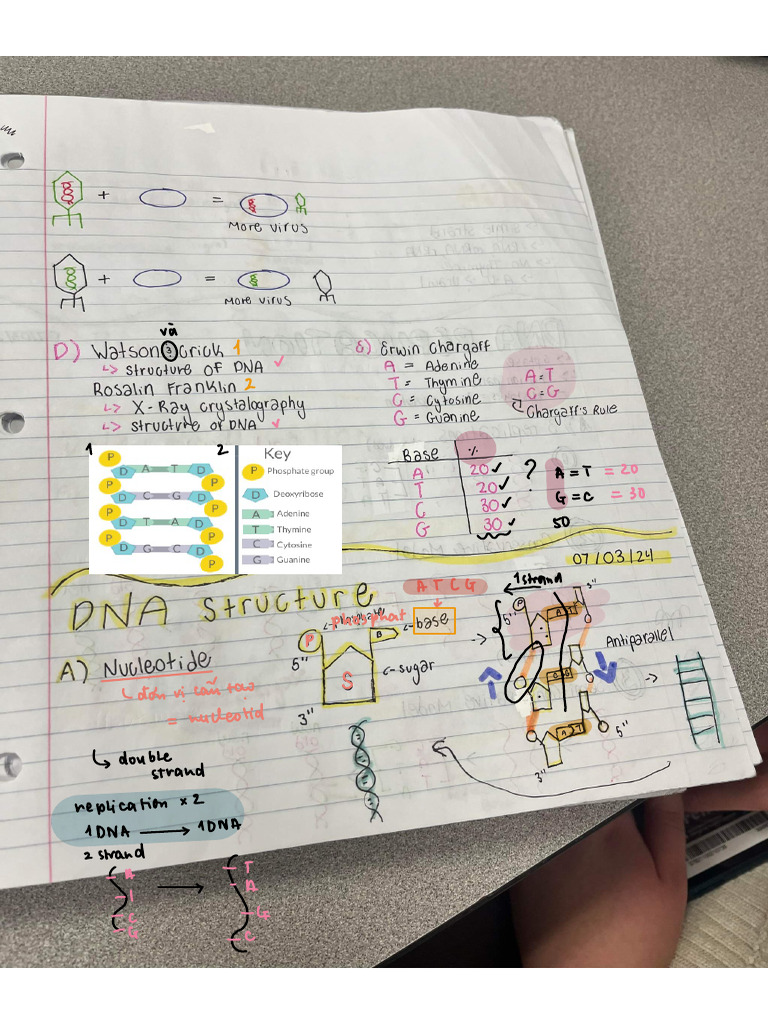 + =
More virus
+ =
More virus
và
D) Watson & Crick 1
↳ structure of DNA ✓
Rosalin Franklin 2
↳ X-Ray crystalography
↳ structure of DNA ✓
E) Erwin Chargaff
A = Adenine
T = Thymine
C = Cytosine
G = Guanine
A=T
C=G
Chargaff's Rule
1 2
P D A T D P
P D C G D P
P D T A D P
P D G C D P
Key
P Phosphate group
D Deoxyribose
A Adenine
T Thymine
C Cytosine
G Guanine
Base %
A 20 ✓
T 20 ✓
C 30 ✓
G 30 ✓
?
A = T = 20
G = C = 30
50
07/03/24
DNA Structure
A T C G
phosphat
base
P B
5"
S
sugar
3"
A) Nucleotide
↳ đơn vị cấu tạo
= nucleotid
1 strand
3"
5"
P
Antiparallel
5"
3"
↳ double
strand
replication x 2
1 DNA → 1 DNA
2 strand
A T
T A
C G
G C